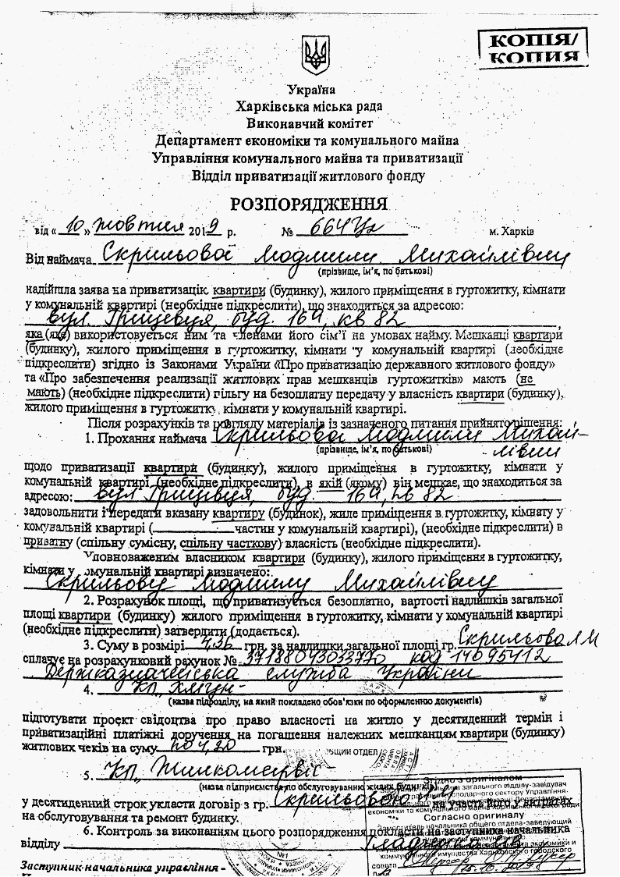 КОПІЯ/
КОПИЯ
Україна
Харківська міська рада
Виконавчий комітет
Департамент економіки та комунального майна
Управління комунального майна та приватизації
Відділ приватизації житлового фонду
РОЗПОРЯДЖЕННЯ
від « 10 » жовтня 2019 р. № м. Харків
Від наймача Скрильової Людмили Михайлівни
(прізвище, ім'я, по батькові)
надійшла заява на приватизацію квартири (будинку), жилого приміщення в гуртожитку, кімнати
у комунальній квартирі (необхідне підкреслити), що знаходиться за адресою:
вул. Грицевця, буд. 16А, кв 82
яка (яке) використовується ним та членами його сім'ї на умовах найму. Мешканці квартири
(будинку), жилого приміщення в гуртожитку, кімнати у комунальній квартирі (необхідне
підкреслити) згідно із Законами України «Про приватизацію державного житлового фонду»
та «Про забезпечення реалізації житлових прав мешканців гуртожитків» мають (не
мають) (необхідне підкреслити) пільгу на безоплатну передачу у власність квартири (будинку),
жилого приміщення в гуртожитку, кімнати у комунальній квартирі.
Після розрахунків та розгляду матеріалів із зазначеного питання прийнято рішення:
1. Прохання наймача Скрильової Людмили Михай-
(прізвище, ім'я, по батькові)
лівни
щодо приватизації квартири (будинку), жилого приміщення в гуртожитку, кімнати у
комунальній квартирі (необхідне підкреслити), в якій (якому) він мешкає, що знаходиться за
адресою: вул Грицевця, буд. 16А, кв 82
задовольнити і передати вказану квартиру (будинок), жиле приміщення в гуртожитку, кімнату у
комунальній квартирі ( частин у комунальній квартирі), (необхідне підкреслити) в
приватну (спільну сумісну, спільну часткову) власність (необхідне підкреслити).
Уповноваженим власником квартири (будинку), жилого приміщення в гуртожитку,
кімнати у комунальній квартирі визначено:
Скрильову Людмилу Михайлівну
2. Розрахунок площі, що приватизується безоплатно, вартості надлишків загальної
площі квартири (будинку) жилого приміщення в гуртожитку, кімнати у комунальній квартирі
(необхідне підкреслити) затвердити (додається).
3. Суму в розмірі грн. за надлишки загальної площі гр. Скрильова Л М
сплачує на розрахунковий рахунок № код 14095412
Держказначейська служба України
4. КП
(назва підрозділу, на який покладено обов'язки по оформленню документів)
підготувати проект свідоцтва про право власності на житло у десятиденний термін і
приватизаційні платіжні доручення на погашення належних мешканцям квартири (будинку)
житлових чеків на суму грн.
5. КП Жилкомсервіс
(назва підприємства по обслуговуванню жилих будинків)
у десятиденний строк укласти договір з гр. Скрильовою на участь його у витратах
на обслуговування та ремонт будинку.
6. Контроль за виконанням цього розпорядження покласти на заступника начальника
відділу
Згідно з оригіналом
Согласно оригиналу
Заступник начальника управління -